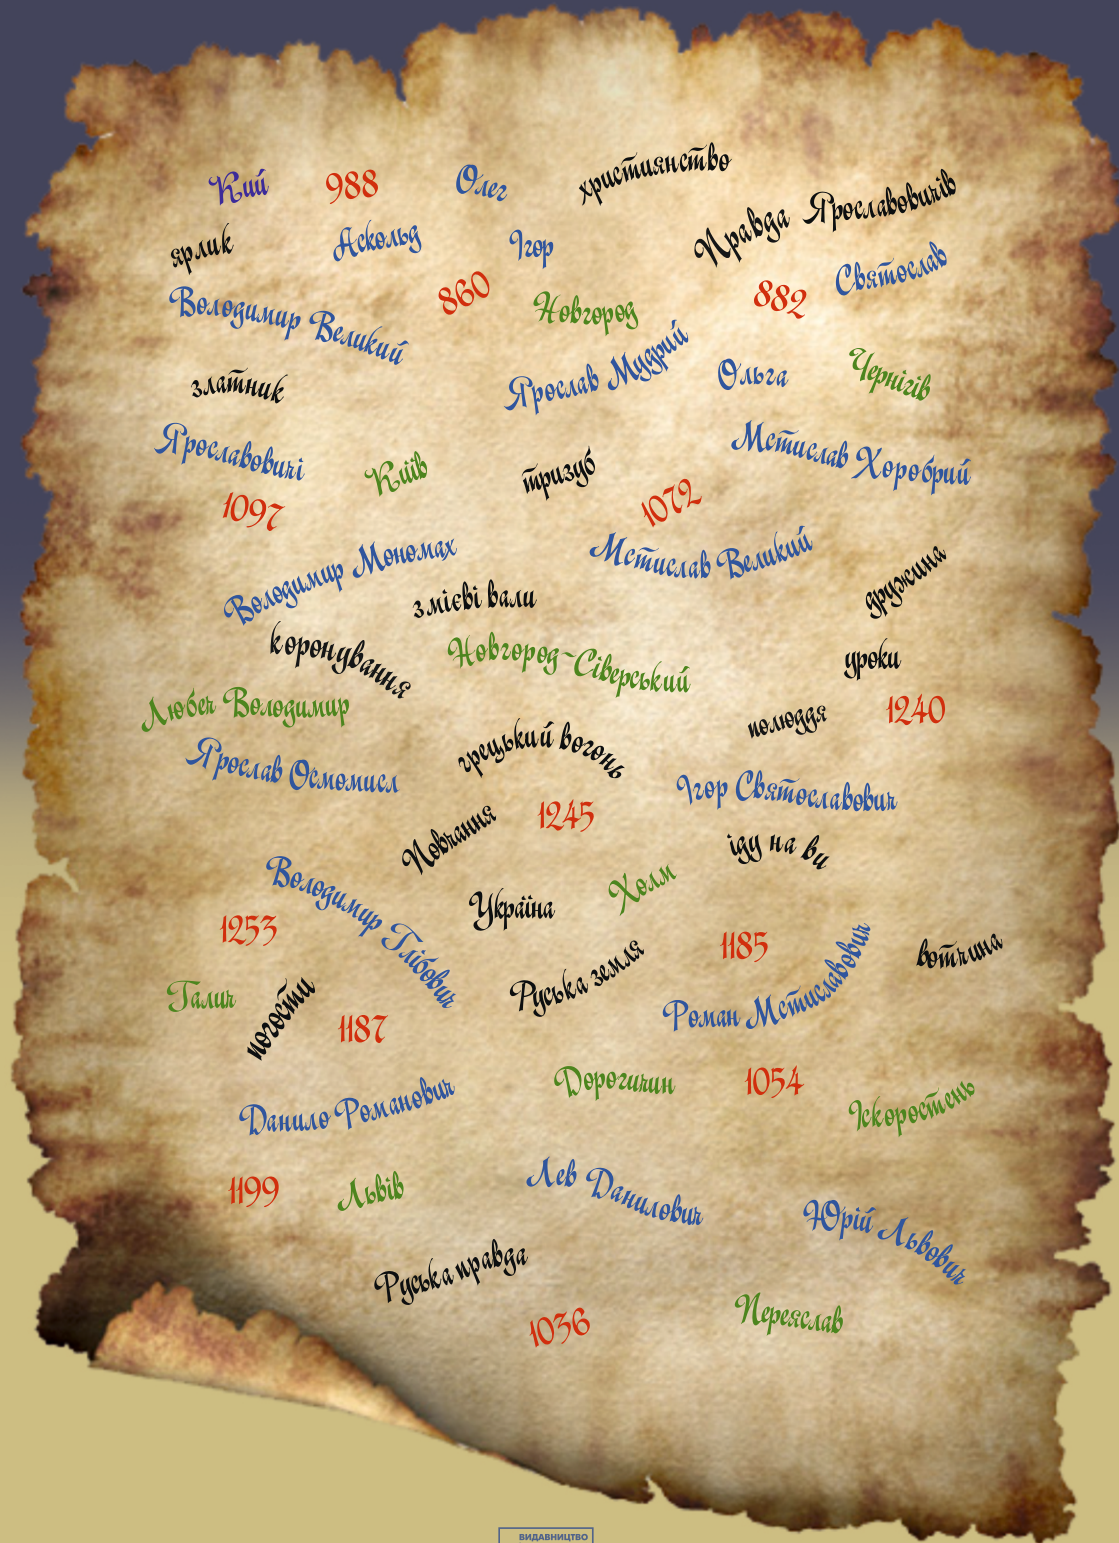 християнство
Кий
988
Олег
Правда Ярославовичів
ярлик
Аскольд
Ігор
860
882
Святослав
Володимир Великий
Новгород
Ярослав Мудрий
Ольга
Чернігів
златник
Ярославовичі
Київ
тризуб
Мстислав Хоробрий
1097
1072
Володимир Мономах
Мстислав Великий
змієві вали
дружина
коронування
Новгород-Сіверський
уроки
Любеч Володимир
полюддя
1240
Ярослав Осмомисл
грецький вогонь
Ігор Святославович
Повчання
1245
іду на ви
Володимир Глібович
Україна
Холм
1253
1185
вотчина
Галич
погости
1187
Руська земля
Роман Мстиславович
Данило Романович
Дорогичин
1054
Іскоростень
1199
Львів
Лев Данилович
Юрій Львович
Руська правда
1036
Переяслав
ВИДАВНИЦТВО